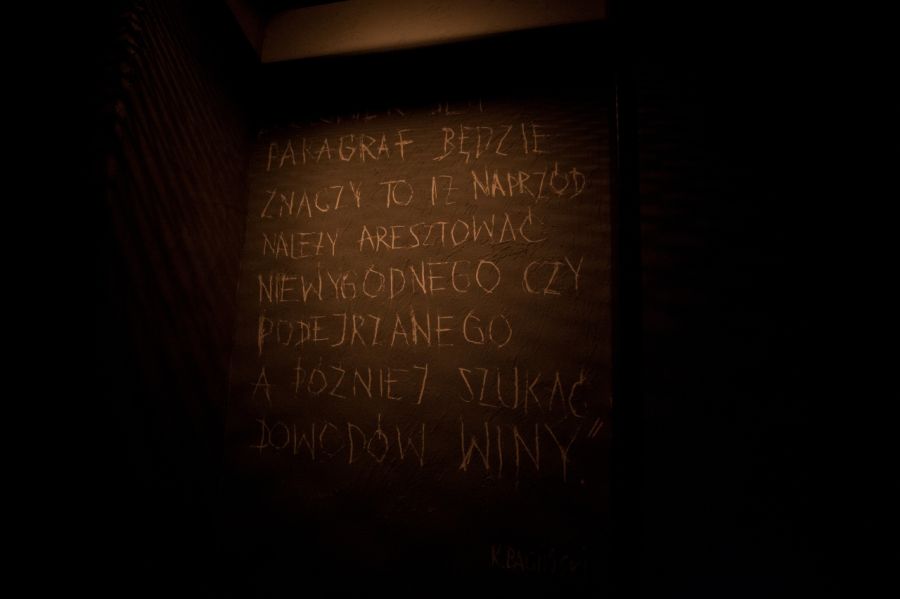 PARAGRAF BĘDZIE
ZNACZY TO IŻ NAPRZÓD
NALEŻY ARESZTOWAĆ
NIEWYGODNEGO CZY
PODEJRZANEGO
A PÓŹNIEJ SZUKAĆ
DOWODÓW WINY"